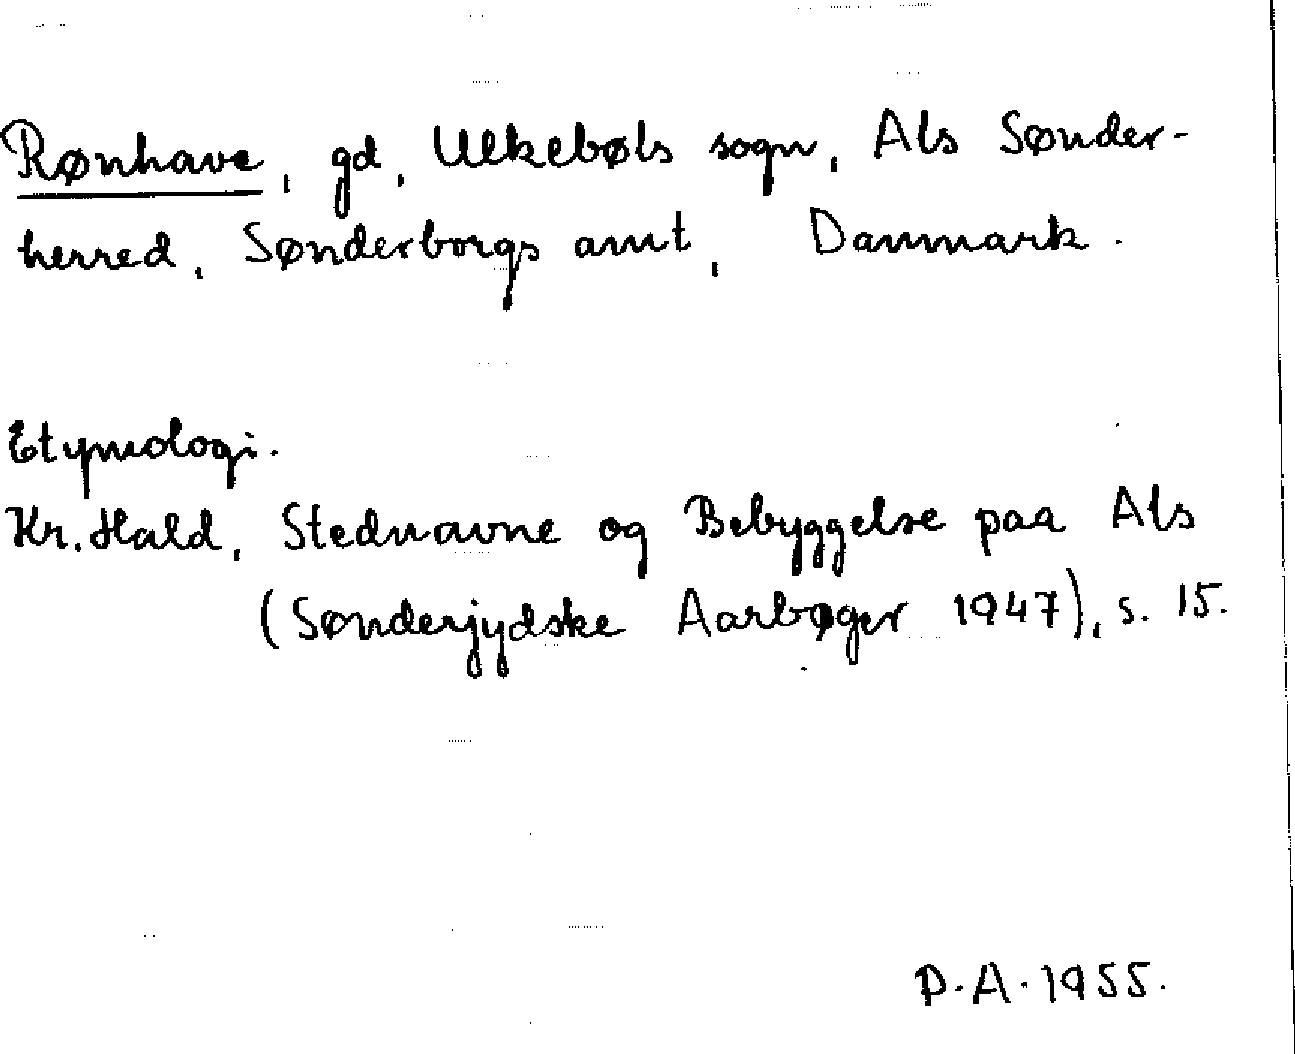 Rønhave, gd, Ulkebøls sogn, Als Sønder-
herred, Sønderborgs amt, Danmark.
Etymologi.
Kr. Hald, Stednavne og Bebyggelse paa Als
(Sønderjydske Aarbøger 1947), s. 15.
P.A. 1955.